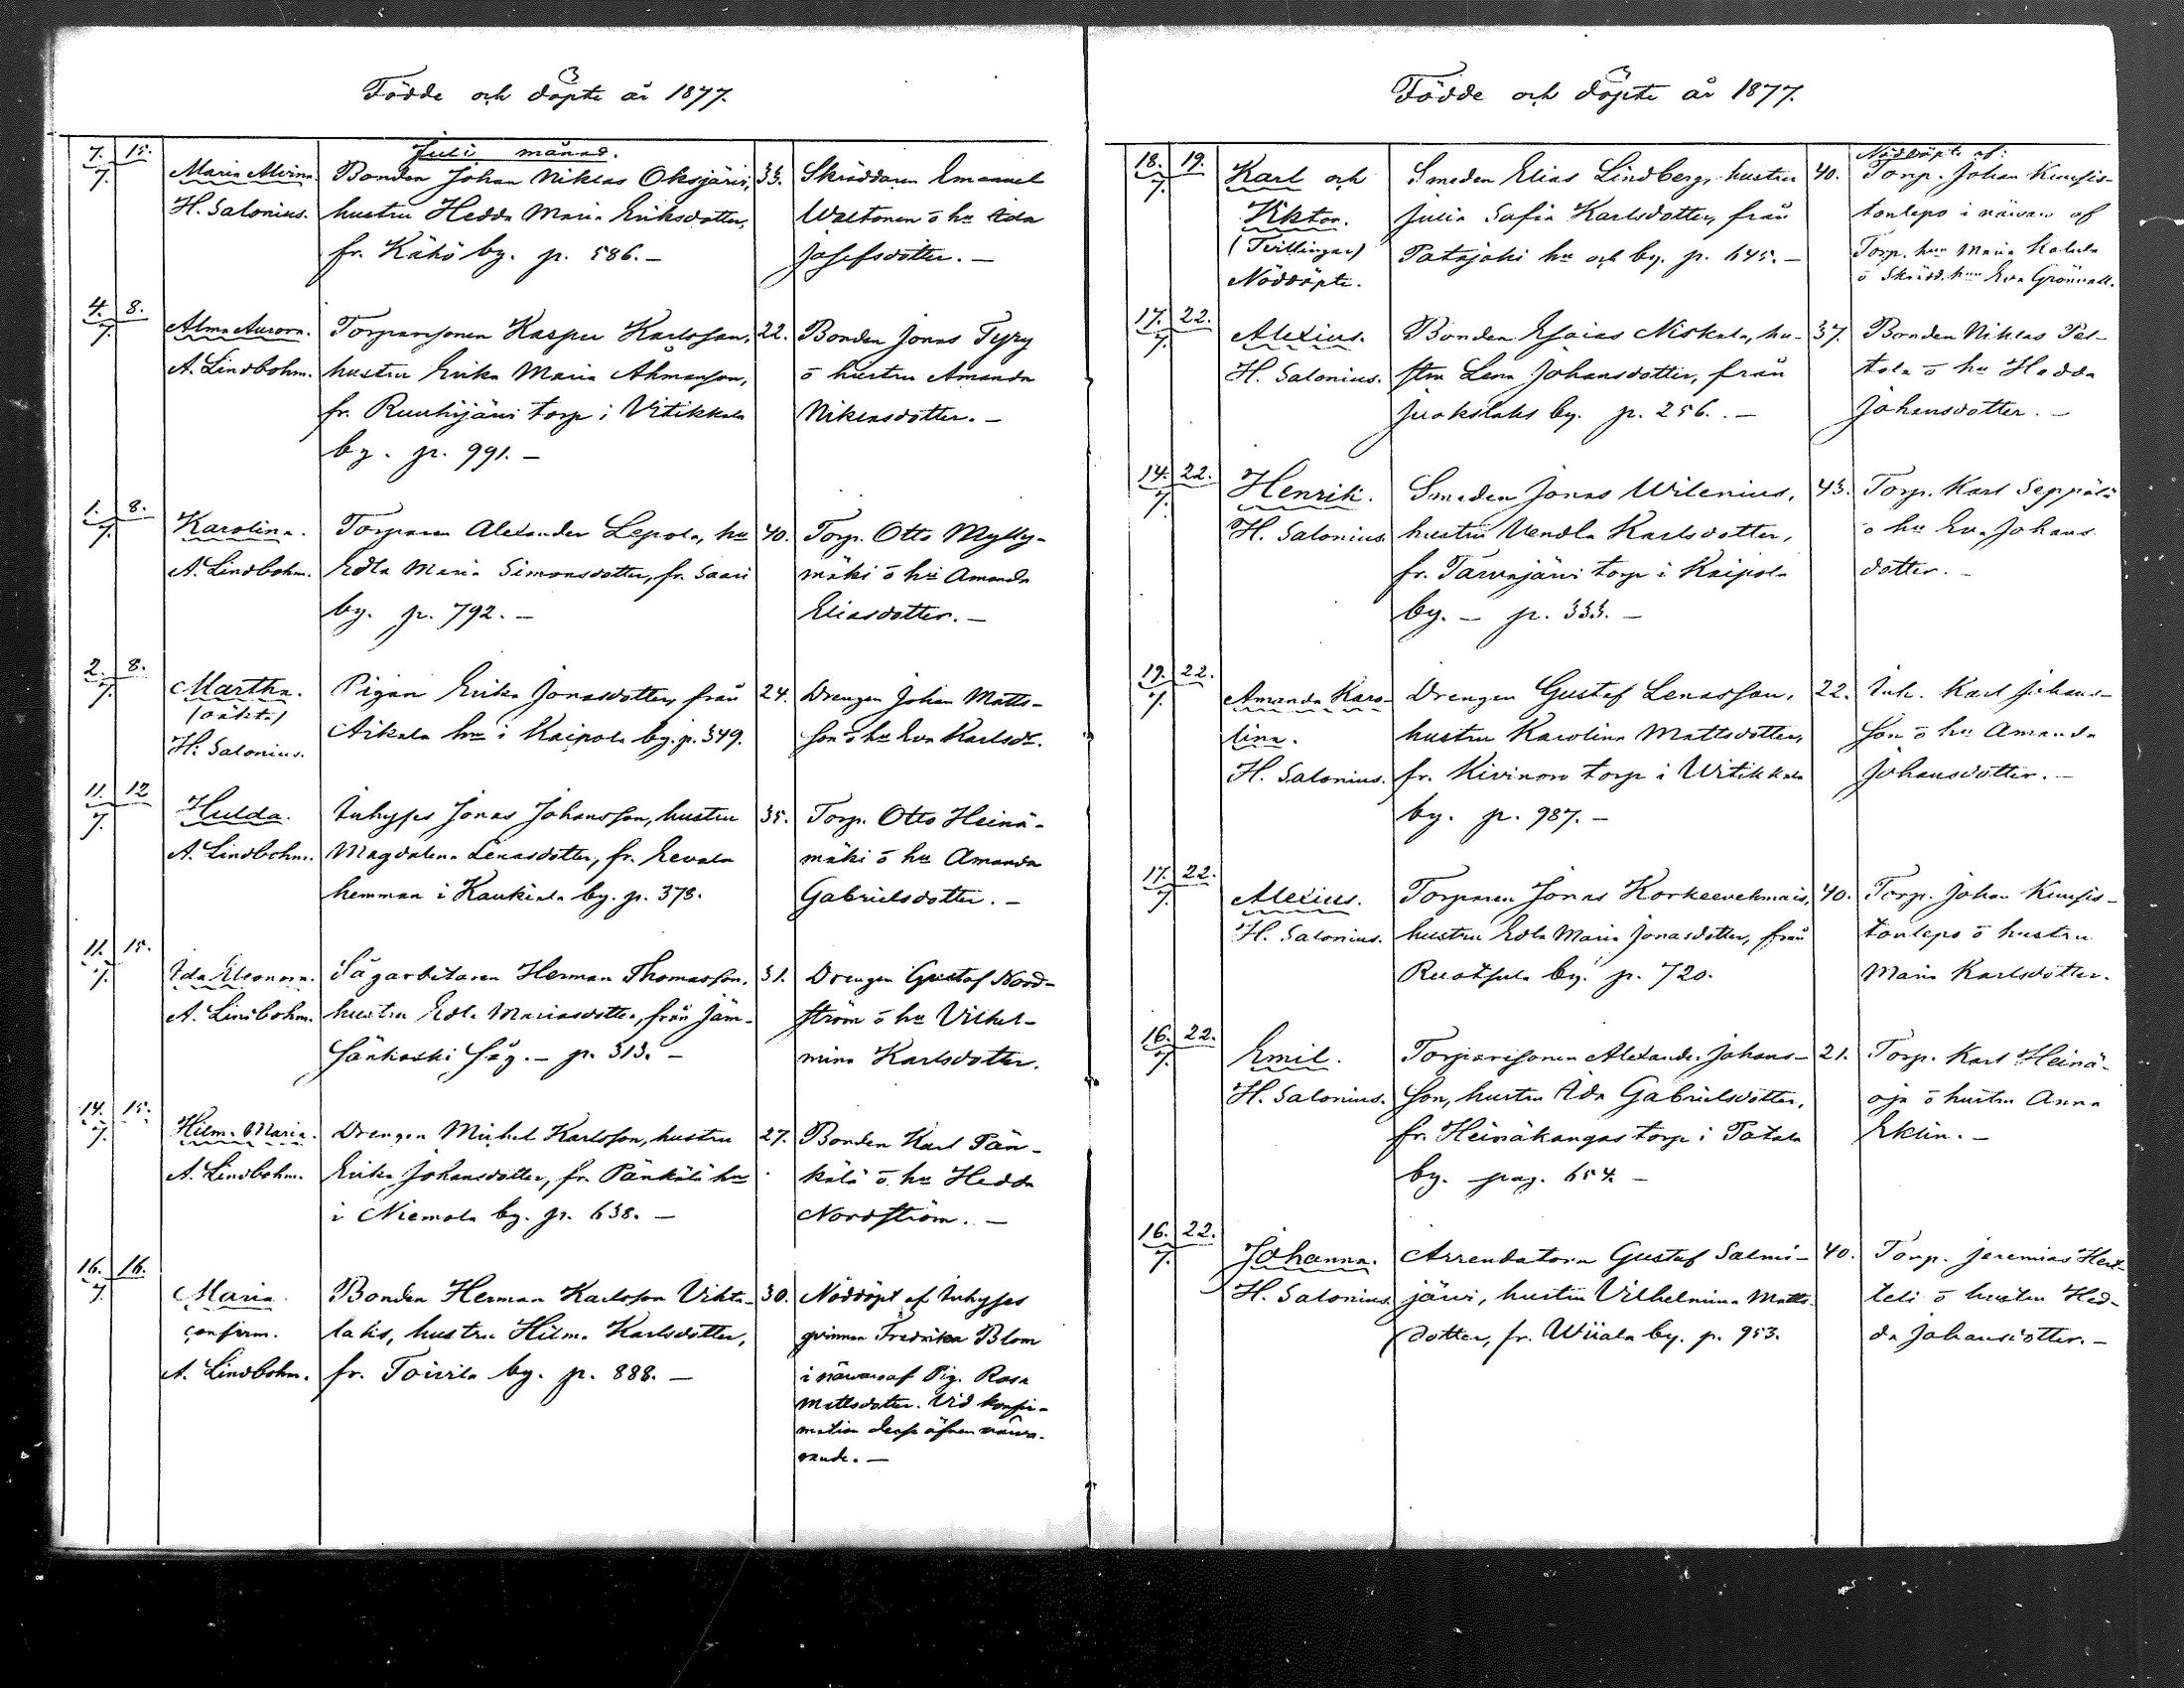 Födde och döpte år 1877.
Juli månad.
7. 15.
7.
Maria Alvina. Bonden Johan Niklas Oksjärvi, 33. Skräddaren Emanuel
H. Salonius. hustru Hedda Maria Eriksdotter, Waltonen o hu Ida
fr. Kähö by. p. 586. – Josefsdotter. –
4. 8.
7.
Alma Aurora. Torparesonen Kasper Karlsson, 22. Bonden Jonas Tyry
A. Lindbohm. hustru Erika Maria Åhmanson, o hustru Amanda
fr. Ruuhijärvi torp i Vitikkala Niklasdotter. –
by. p. 991. –
1. 8.
7.
Karolina. Torparen Alexander Lepola, hu 40. Torp. Otto Mylly-
A. Lindbohm. Edla Maria Simonsdotter, fr. Saari mäki o hu Amanda
by. p. 792. – Eliasdotter. –
2. 8.
7.
Martha. Pigan Erika Jonasdotter, från 24. Drengen Johan Matts-
(oäkta) Arkala hn i Kaipola by. p. 349. son o hu Eva Karlsdr.
H. Salonius.
11. 12
7.
Hulda. Inhyses Jonas Johansson, hustru 35. Torp. Otto Heinä-
A. Lindbohm. Magdalena Lenasdotter, fr. Eevala mäki o hu Amanda
hemman i Kaukiala by. p. 378. Gabrielsdotter. –
11. 15.
7.
Ida Eleonora. Sågarbetaren Herman Thomasson, 31. Drengen Gustaf Nord-
A. Lindbohm. hustru Edla Mariasdotter, från Jäm- ström o hu Vilhel-
sänkoski såg. – p. 313. – mina Karlsdotter.
14. 15.
7.
Hilma Maria. Drengen Michel Karlsson, hustru 27. Bonden Karl Pän-
A. Lindbohm. Erika Johansdotter, fr. Pänkälä hn kälä o. hu Hedda
i Niemola by. p. 638. – Nordström. –
16. 16.
7.
Maria. Bonden Herman Karlsson Vihta- 30. Nöddöpt af Inhyses
confirm. laks, hustru Hilma Karlsdotter, qvinnan Fredrika Blom
A. Lindbohm. fr. Toivila by. p. 888. – i närvaro af Pig. Rosa
Mattsdotter. Vid konfir-
mation dess äfven närva-
rande. –
Födde och döpte år 1877.
18. 19.
7.
Nöddöpte af:
Karl och Smeden Elias Lindberg, hustru 40. Torp. Johan Kuusis-
Viktor. Julia Sofia Karlsdotter, från tonlepo i närvaro af
(Tvillingar) Patajoki hn och by. p. 645. – Torp. hun Maria
Nöddöpte. o Skrädd. hun Eva Grönvall.
17. 22.
7.
Alexius. Bonden Esaias Niskala, hu- 37. Bonden Niklas Pel-
H. Salonius. stru Lena Johansdotter, från tola o hu Hedda
Juokslaks by. p. 256. – Johansdotter. –
14. 22.
7.
Henrik. Smeden Jonas Wilenius, 43. Torp. Karl Seppälä
H. Salonius hustru Vendla Karlsdotter, o hu Eva Johans
fr. Tarvajärvi torp i Kaipola dotter. –
by. – p. 333. –
19. 22.
7.
Amanda Karo- Drengen Gustaf Lenasson, 22. Inh. Karl Johans-
lina. hustru Karolina Mattsdotter, son o hu Amanda
H. Salonius. fr. Kivinoro torp i Witikkala Johansdotter. –
by. p. 987. –
17. 22.
7.
Alexius. Torparen Jonas Korkeevehmais, 40. Torp. Johan Kuusis-
H. Salonius. hustru Edla Maria Jonasdotter, från tonlepo o hustru
Ruotsula by. p. 720. Maria Karlsdotter.
16. 22.
7.
Emil. Torparesonen Alexander Johans- 21. Torp. Karl Heinä-
H. Salonius. son, hustru Ida Gabrielsdotter, oja o hustru Anna
fr. Heinäkangas torp i Patala Eklin. –
by. pag. 654. –
16. 22.
7.
Johanna. Arrendatorn Gustaf Salmi- 40. Torp. Jeremias Hert-
H. Salonius järvi, hustru Vilhelmina Matts- teli o hustru Hed-
dotter, fr. Wiiala by. p. 953. da Johansdotter. –